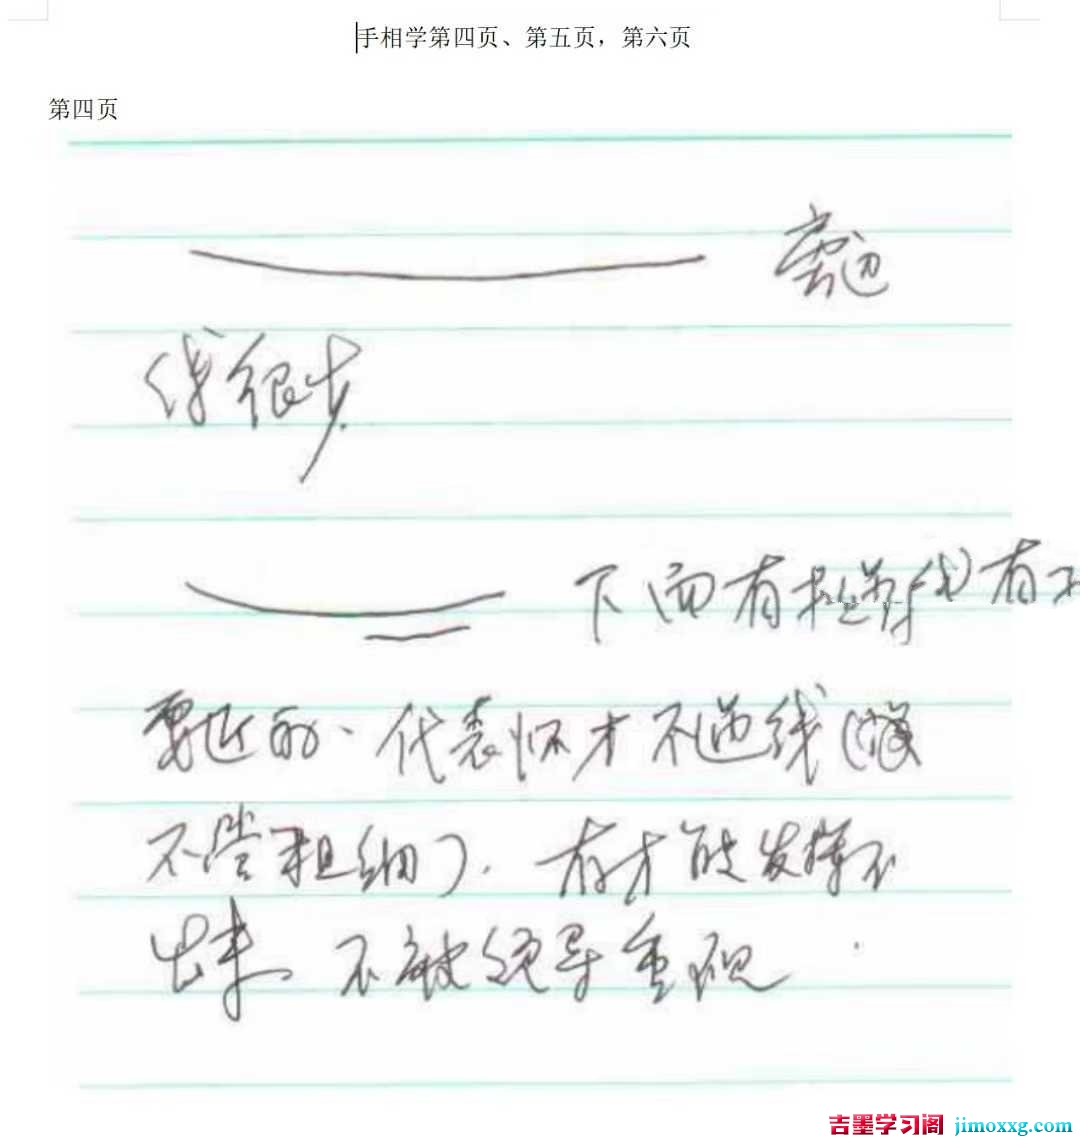 手相学第四页、第五页，第六页
第四页
线很少.
下面有
要近的、代表怀才不遇线(
不管粗细). 有才能发挥不
出来 不被领导重视
吉墨学习阁 jimoxxg.com